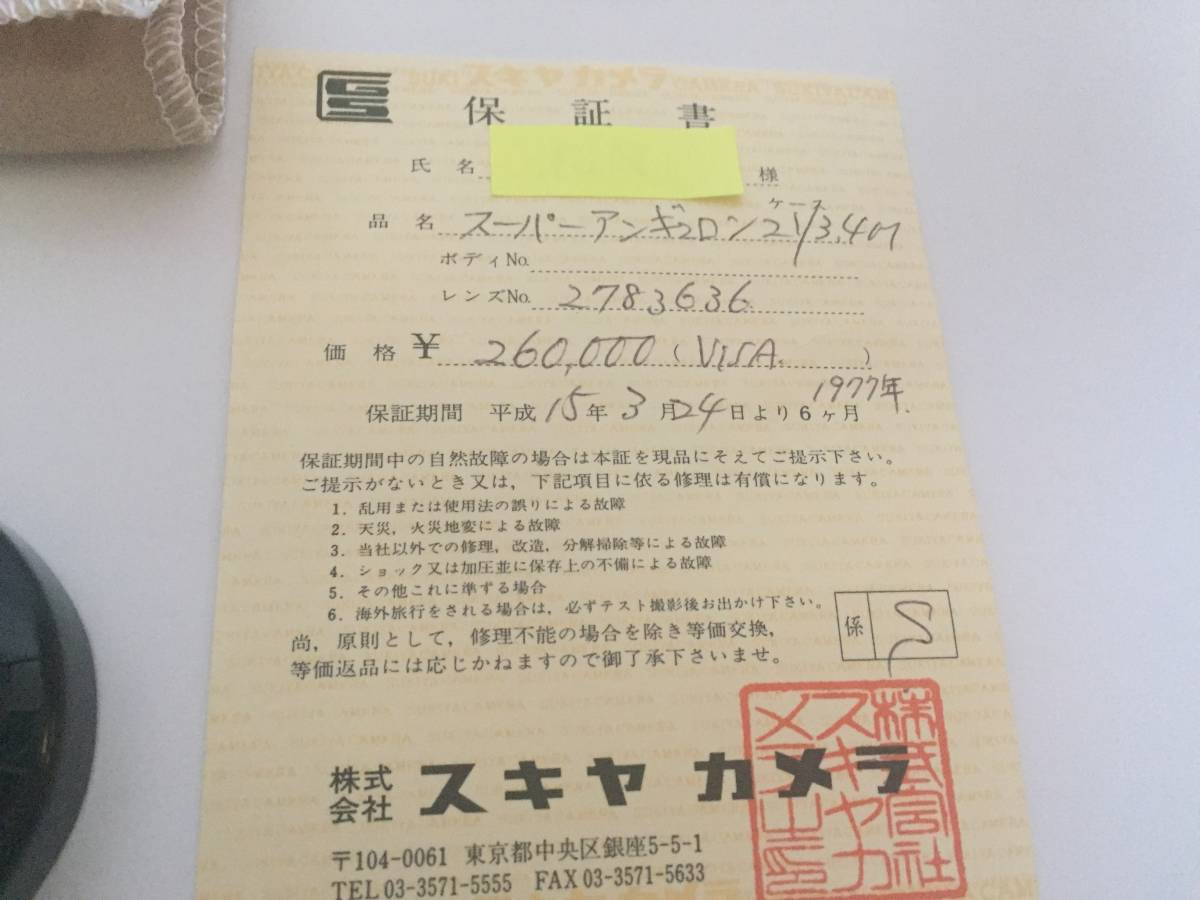 保証書
氏名 様
ケース
品名 スーパーアンギュロン21/3,4
ボディNo.
レンズNo. 2783636
価格 ¥ 260,000 (VISA )
1977年
保証期間 平成15年3月24日より6ヶ月
保証期間中の自然故障の場合は本証を現品にそえてご提示下さい。
ご提示がないとき又は，下記項目に依る修理は有償になります。
1．乱用または使用法の誤りによる故障
2．天災，火災地変による故障
3．当社以外での修理，改造，分解掃除等による故障
4．ショック又は加圧並に保存上の不備による故障
5．その他これに準ずる場合
6．海外旅行をされる場合は，必ずテスト撮影後お出かけ下さい。
尚，原則として，修理不能の場合を除き等価交換，
等価返品には応じかねますので御了承下さいませ。
係
株式会社 スキヤカメラ
〒104-0061 東京都中央区銀座5-5-1
TEL 03-3571-5555 FAX 03-3571-5633
株式会社
スキヤカ
メラ